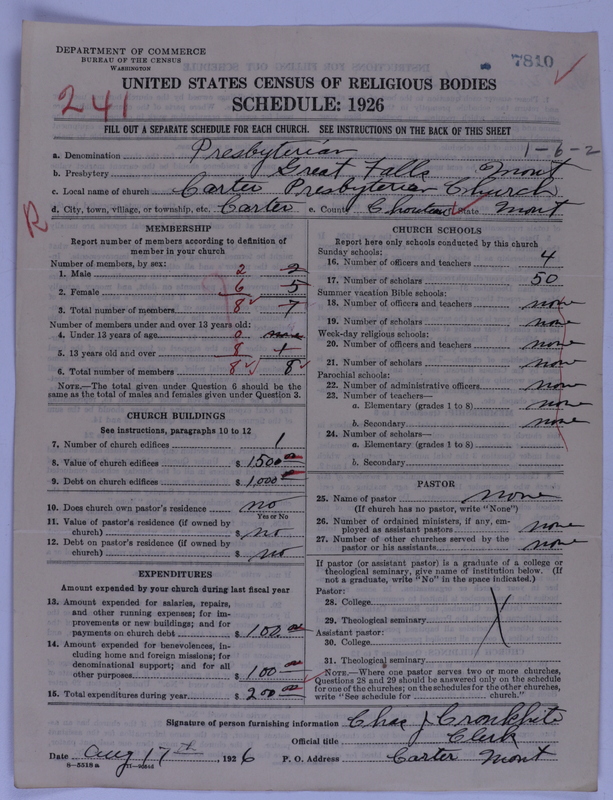 DEPARTMENT OF COMMERCE
BUREAU OF THE CENSUS
WASHINGTON
7810
241
UNITED STATES CENSUS OF RELIGIOUS BODIES
SCHEDULE: 1926
FILL OUT A SEPARATE SCHEDULE FOR EACH CHURCH. SEE INSTRUCTIONS ON THE BACK OF THIS SHEET
1-6-2
a. Denomination Presbyterian
b. Presbytery Great Falls Mont
c. Local name of church Carter Presbyterian Church
d. City, town, village, or township, etc. Carter e. County Chouteau State Mont
R
MEMBERSHIP
Report number of members according to definition of member in your church
Number of members, by sex:
1. Male 2 2
2. Female 6 5
3. Total number of members 8 7
Number of members under and over 13 years old:
4. Under 13 years of age 0 none
5. 13 years old and over 8
6. Total number of members 8 8
NOTE.—The total given under Question 6 should be the same as the total of males and females given under Question 3.
CHURCH BUILDINGS
See instructions, paragraphs 10 to 12
7. Number of church edifices 1
8. Value of church edifices $ 1500 00
9. Debt on church edifices $ 1,000
10. Does church own pastor's residence no
Yes or No
11. Value of pastor's residence (if owned by church) $ no
12. Debt on pastor's residence (if owned by church) $ no
EXPENDITURES
Amount expended by your church during last fiscal year
13. Amount expended for salaries, repairs, and other running expenses; for improvements or new buildings; and for payments on church debt $ 100 00
14. Amount expended for benevolences, including home and foreign missions; for denominational support; and for all other purposes $ 100 00
15. Total expenditures during year $ 200 00
CHURCH SCHOOLS
Report here only schools conducted by this church
Sunday schools:
16. Number of officers and teachers 4
17. Number of scholars 50
Summer vacation Bible schools:
18. Number of officers and teachers none
19. Number of scholars none
Week-day religious schools:
20. Number of officers and teachers none
21. Number of scholars none
Parochial schools:
22. Number of administrative officers none
23. Number of teachers—
a. Elementary (grades 1 to 8) none
b. Secondary none
24. Number of scholars—
a. Elementary (grades 1 to 8)
b. Secondary
PASTOR
25. Name of pastor none
(If church has no pastor, write "None")
26. Number of ordained ministers, if any, employed as assistant pastors none
27. Number of other churches served by the pastor or his assistants none
If pastor (or assistant pastor) is a graduate of a college or theological seminary, give name of institution below. (If not a graduate, write "No" in the space indicated.)
Pastor:
28. College
29. Theological seminary
Assistant pastor:
30. College
31. Theological seminary
NOTE.—Where one pastor serves two or more churches, Questions 28 and 29 should be answered only on the schedule for one of the churches; on the schedules for the other churches, write "See schedule for church."
Signature of person furnishing information Chas J Cronkhite
Official title Clerk
Date Aug 17th 1926 P. O. Address Carter Mont
8-5518a